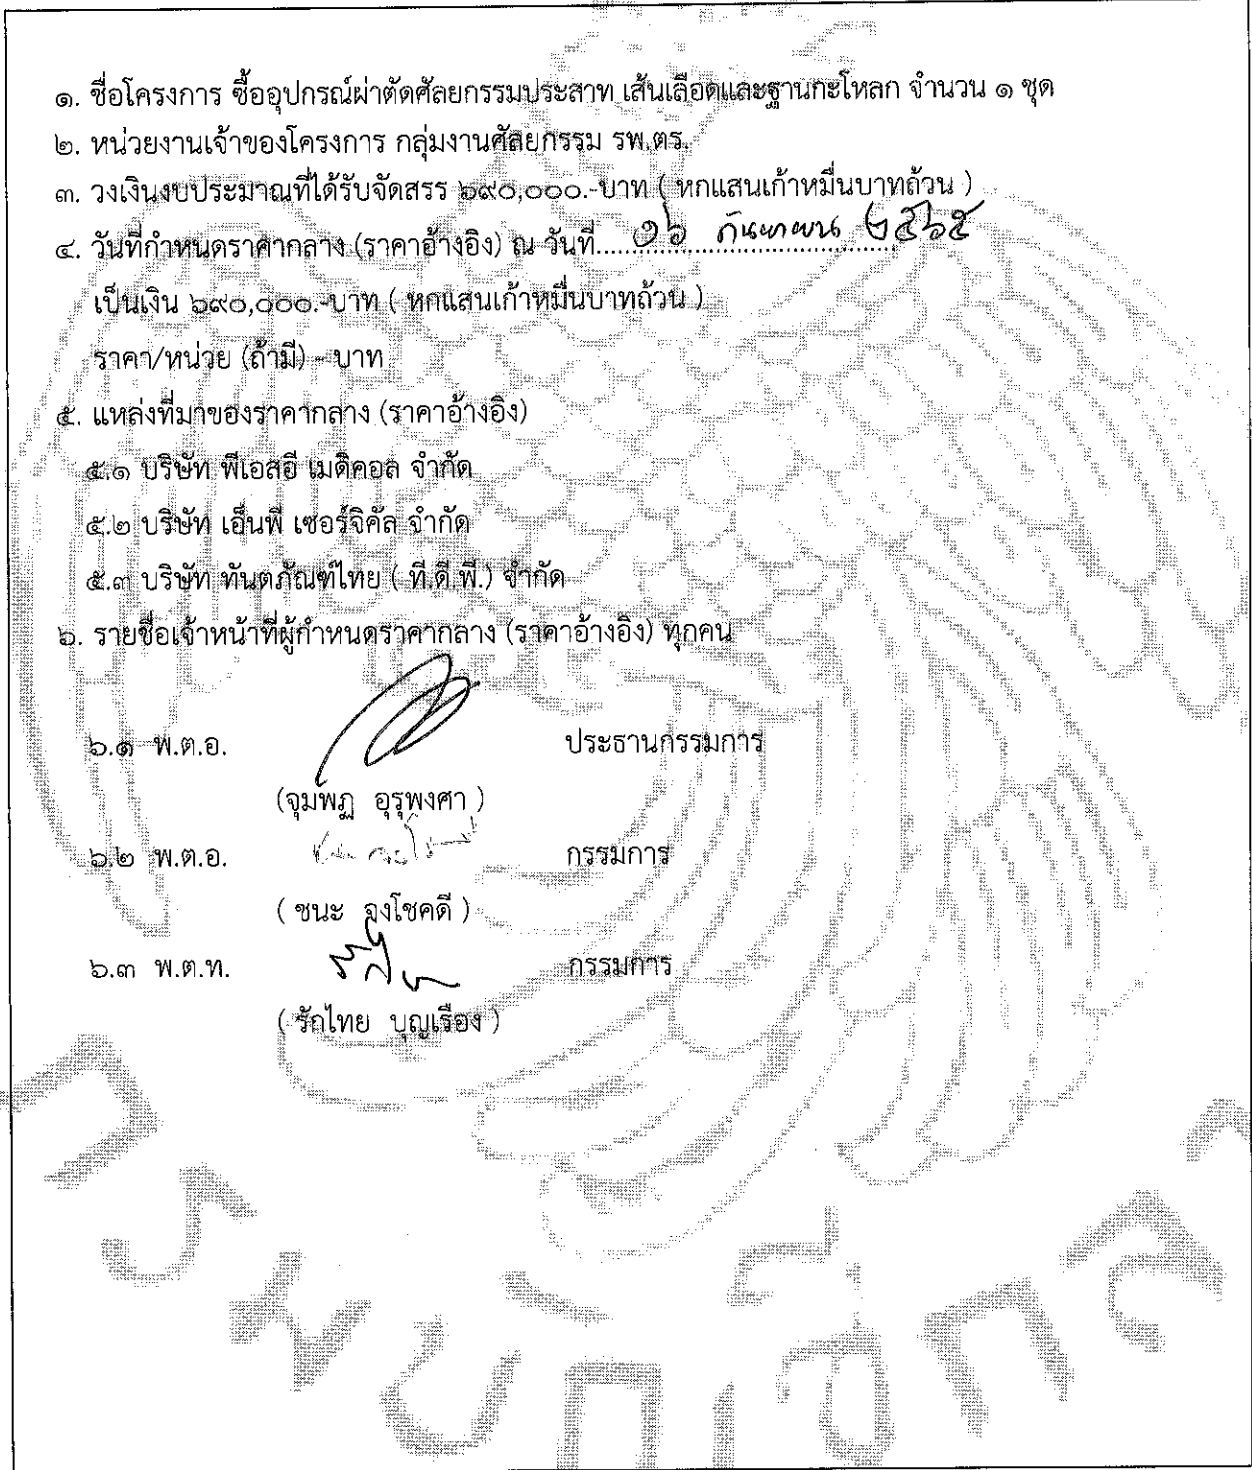 ๑. ชื่อโครงการ ซื้ออุปกรณ์ผ่าตัดศัลยกรรมประสาท เส้นเลือดและฐานกะโหลก จำนวน ๑ ชุด
๒. หน่วยงานเจ้าของโครงการ กลุ่มงานศัลยกรรม รพ.ตร.
๓. วงเงินงบประมาณที่ได้รับจัดสรร ๖๙๐,๐๐๐.-บาท ( หกแสนเก้าหมื่นบาทถ้วน )
๔. วันที่กำหนดราคากลาง (ราคาอ้างอิง) ณ วันที่..... ๑๖ กันยายน ๒๕๖๕
เป็นเงิน ๖๙๐,๐๐๐.-บาท ( หกแสนเก้าหมื่นบาทถ้วน )
ราคา/หน่วย (ถ้ามี) - บาท
๕. แหล่งที่มาของราคากลาง (ราคาอ้างอิง)
๕.๑ บริษัท พีเอสอี เมดิคอล จำกัด
๕.๒ บริษัท เอ็นพี เซอร์จิคัล จำกัด
๕.๓ บริษัท ทันตภัณฑ์ไทย ( ที.ดี.พี.) จำกัด
๖. รายชื่อเจ้าหน้าที่ผู้กำหนดราคากลาง (ราคาอ้างอิง) ทุกคน
๖.๑ พ.ต.อ. ประธานกรรมการ
(จุมพฏ อุรุพงศา )
๖.๒ พ.ต.อ. กรรมการ
( ชนะ จงโชคดี )
๖.๓ พ.ต.ท. กรรมการ
( รักไทย บุญเรือง )